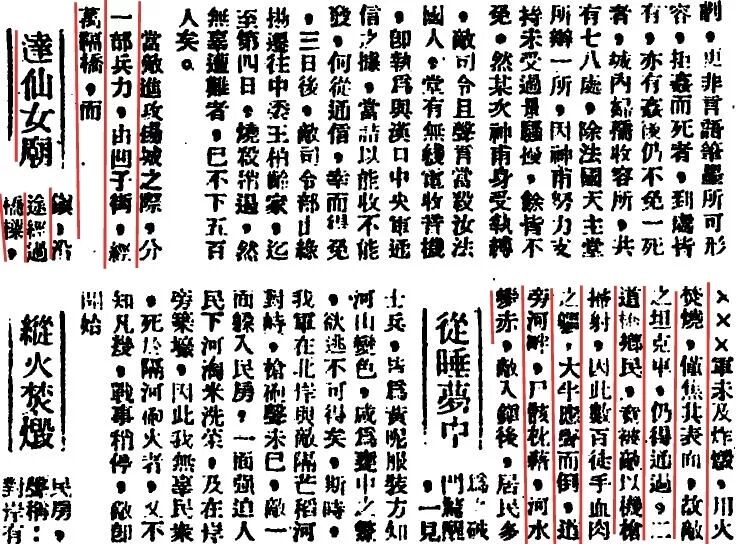 削，更非言語筆墨所可形
容，拒姦而死者，到處皆
有，亦有姦後仍不免一死
者，城內婦孺收容所，共
有七八處，除法國天主堂
所辦一所，因神甫努力支
持未受過量騷擾，餘皆不
免，然某次神甫身受執縛
，敵司令且聲言當殺汝法
國人，堂有無綫電收音機
，即執為與漢口中央軍通
信之據，當詰以能收不能
發，何從通信，幸而得免
，三日後，敵司令部由綠
楊遷往中委王柏齡家，迄
至第四日，燒殺稍過，然
無辜遭難者，已不下五百
人矣。
當敵進攻揚城之際，分
一部兵力，由凹子街，經
萬福橋，而
達仙女廟
鎮，沿
途經過
橋樑，
×××軍未及炸燬，用火
焚燒，僅焦其表面，故敵
之坦克車，仍得通過，二
道橋鄉民，竟被敵以機槍
掃射，因此數百徒手血肉
之軀，大半應聲而倒，道
旁河畔，尸骸枕藉，河水
變赤，敵入鎮後，居民多
從睡夢中
為，破
門驚醒
，一見
士兵，皆為黃呢服裝方知
河山變色，咸為甕中之鱉
，欲逃不可得矣，斯時，
我軍在北岸與敵隔芒稻河
對峙，槍砲聲未已，敵一
面竄入民房，一面强迫人
民下河淘米洗菜，及在岸
旁築壕，因此我無辜民衆
，死於隔河砲火者，又不
知凡幾，戰事稍停，敵即
開始
縱火焚燬
民房，
聲稱：
對岸有